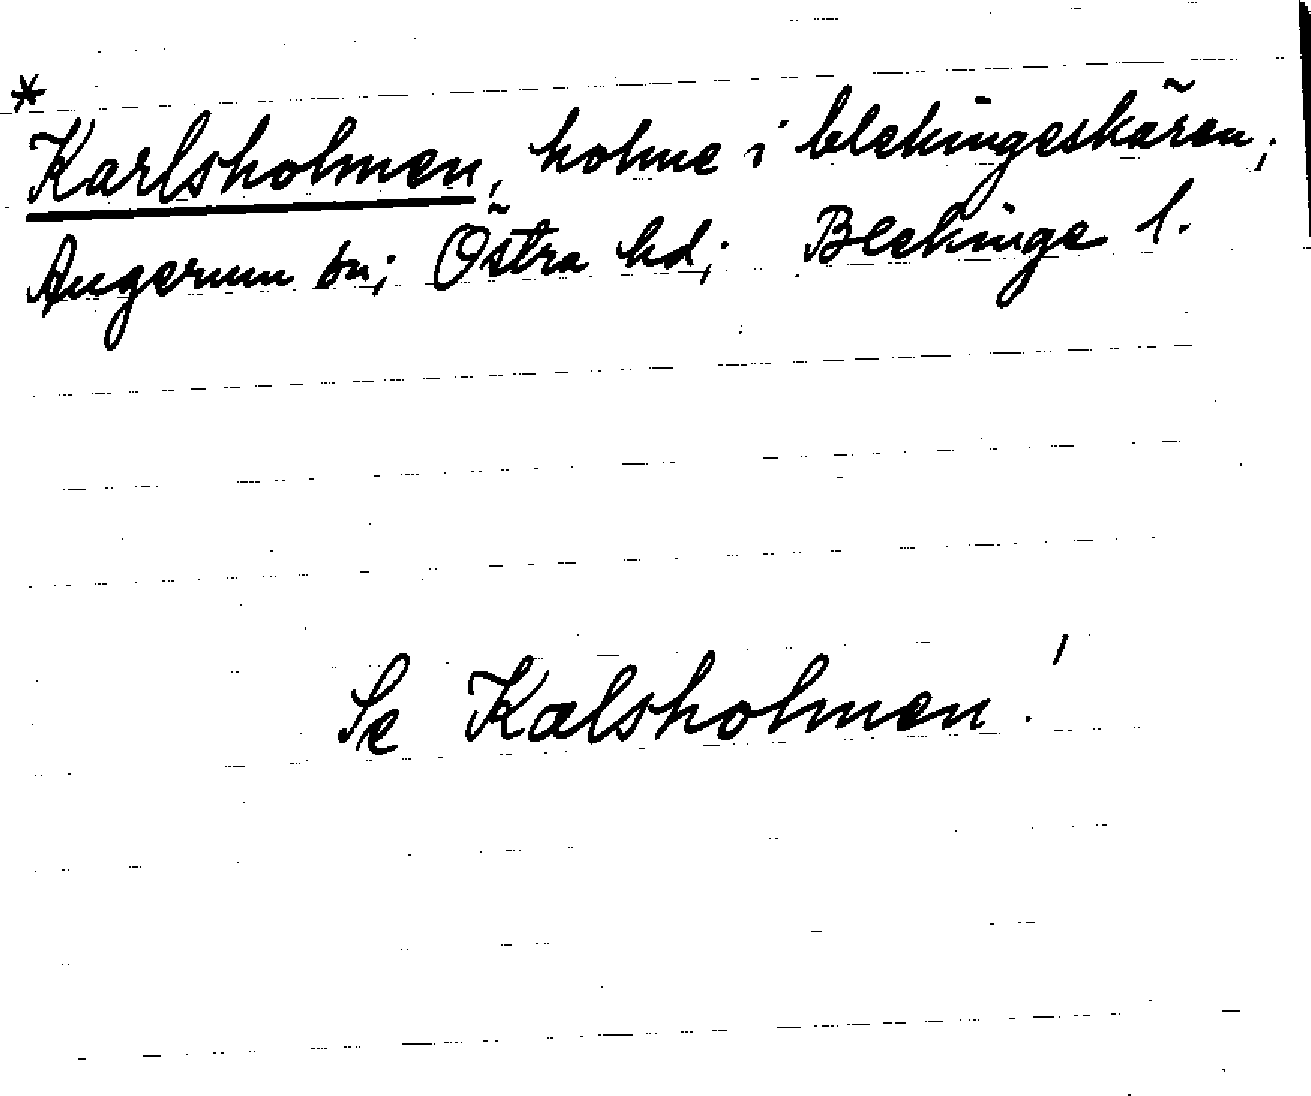 *
Karlsholmen, holme i blekingeskären;
Augerum sn; Östra hd; Blekinge l.
Se Kalsholmen!